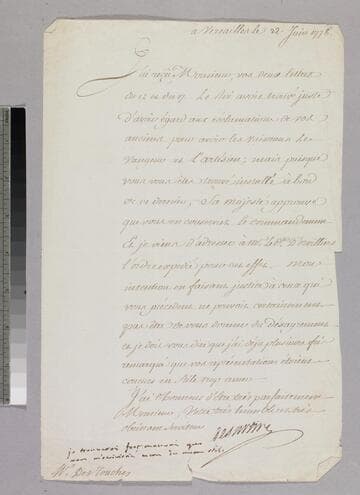 a Versailles le 22 Juin 1778.
J'ai reçu, Monsieur, vos deux lettres
du 12 et du 17. Le Roi auroit trouvé juste
d'avoir égard aux reclamations de vos
anciens pour avoir les vaisseaux le
vangeur et l'artésien; mais puisque
vous vous êtes trouvé installé à bord
de ce dernier, Sa majesté approuve
que vous en conserviez le commandement
et je viens d'adresser à M. le Cte D'orvilliers
l'ordre exprès pour cet effet. mon
intention en faisant justice à ceux qui
vous précedent ne pouvoit certainement
pas être de vous donner du désagrement
et je dois vous dire que j'ai déja plusieurs fois
remarqué que vos représentations étoient
conçues en stile trop amer.
J'ai l'honneur d'être très parfaitement
Monsieur, Votre très humble et très
obéissant serviteur
de sartine
je
que
mon stile
M. Des Touches